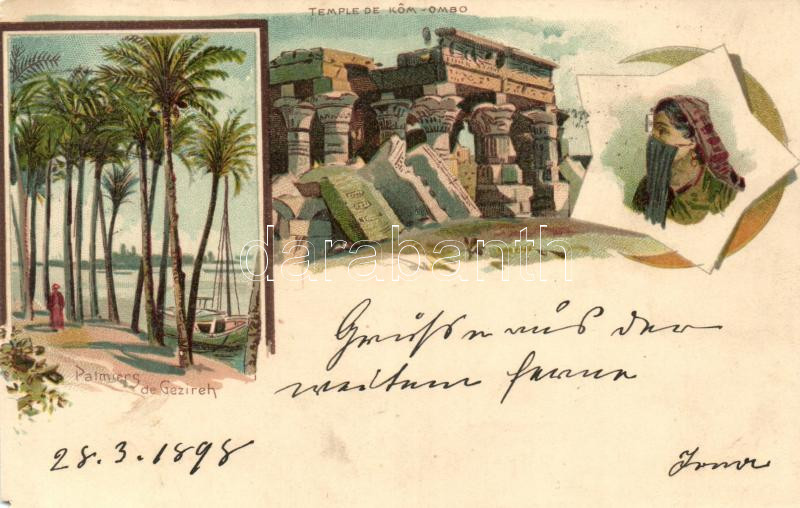 TEMPLE DE KÔM-OMBO
Palmiers
de Gezireh
darabanth
Grüsse aus der
weiten ferne
28.3.1898
Irma